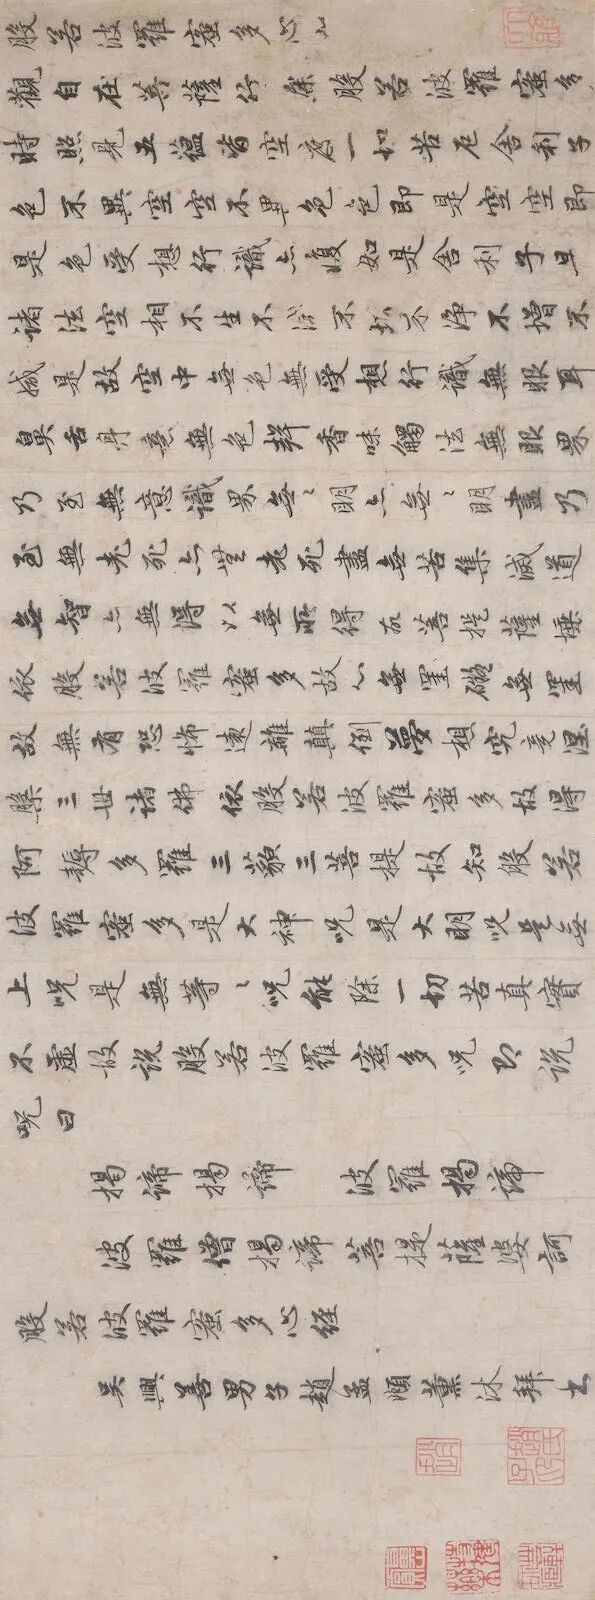 般若波羅蜜多心
觀自在菩薩行深般若波羅蜜多
時照見五蘊皆空度一切苦厄舍利子
色不異空空不異色色即是空空即
是色受想行識亦復如是舍利子是
諸法空相不生不滅不垢不淨不增不
減是故空中無色無受想行識無眼耳
鼻舌身意無色聲香味觸法無眼界
乃至無意識界無〻明亦無〻明盡乃
至無老死亦無老死盡無苦集滅道
無智亦無得以無所得故菩提薩埵
依般若波羅蜜多故心無罣礙無罣
故無有恐怖遠離顛倒夢想究竟涅
槃三世諸佛依般若波羅蜜多故得
阿耨多羅三藐三菩提故知般若
波羅蜜多是大神咒是大明咒是無
上咒是無等〻咒能除一切苦真實
不虛故說般若波羅蜜多咒即說
咒曰
揭諦揭諦 波羅揭諦
波羅僧揭諦菩提薩婆訶
般若波羅蜜多心經
吳興善男子趙孟頫薰沐拜書